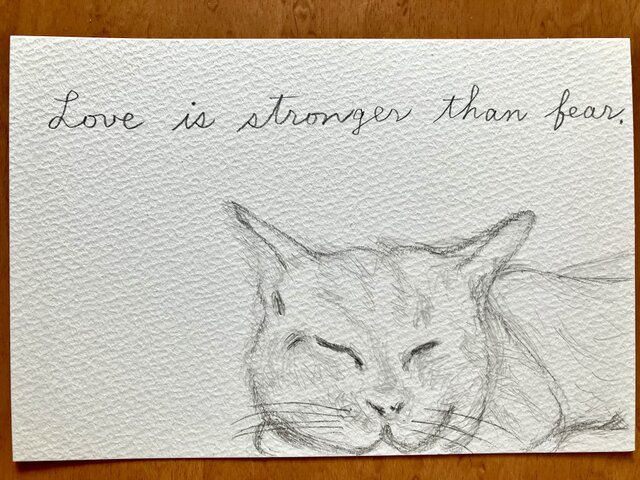 Love is stronger than fear.